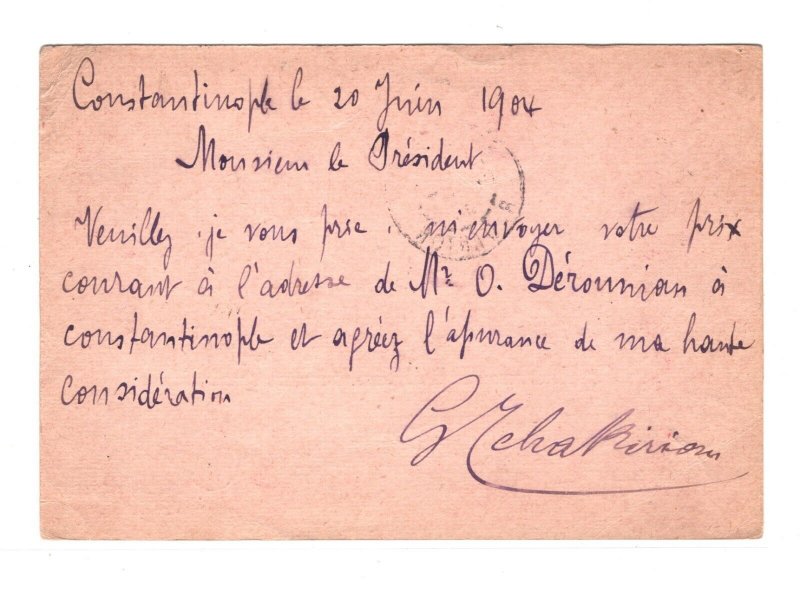 Constantinople le 20 Juin 1904
Monsieur le Président
Veuillez, je vous prie, m'envoyer votre prix
courant à l'adresse de Mr. O. Dérounian à
constantinople et agréez l'assurance de ma haute
considération
G Tchakirian